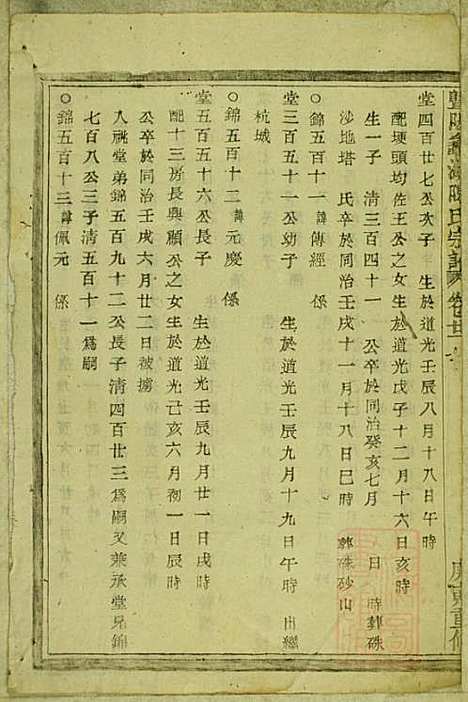 暨陽 陳氏宗譜 卷廿
堂四百廿七公次子 生於道光壬辰八月十八日午時
配埂頭均佐王公之女生於道光戊子十二月十六日亥時
生一子 清三百四十一 公卒於同治癸亥七月 日 時葬硃
沙地塔 氏卒於同治壬戌十一月十八日巳時 葬硃砂山
○錦五百十一諱傳經 係
堂三百五十一公幼子 生於道光壬辰九月十九日午時 出繼
杭城
○錦五百十二諱元慶 係
堂五百五十六公長子 生於道光壬辰九月廿一日戌時
配十三房長與願公之女生於道光己亥六月初一日辰時
公卒於同治壬戌六月廿二日被擄
入祧堂弟錦五百九十二公長子清四百廿三爲嗣又兼承堂兄錦
七百八公三子清五百十一爲嗣
○錦五百十三諱佩元 係